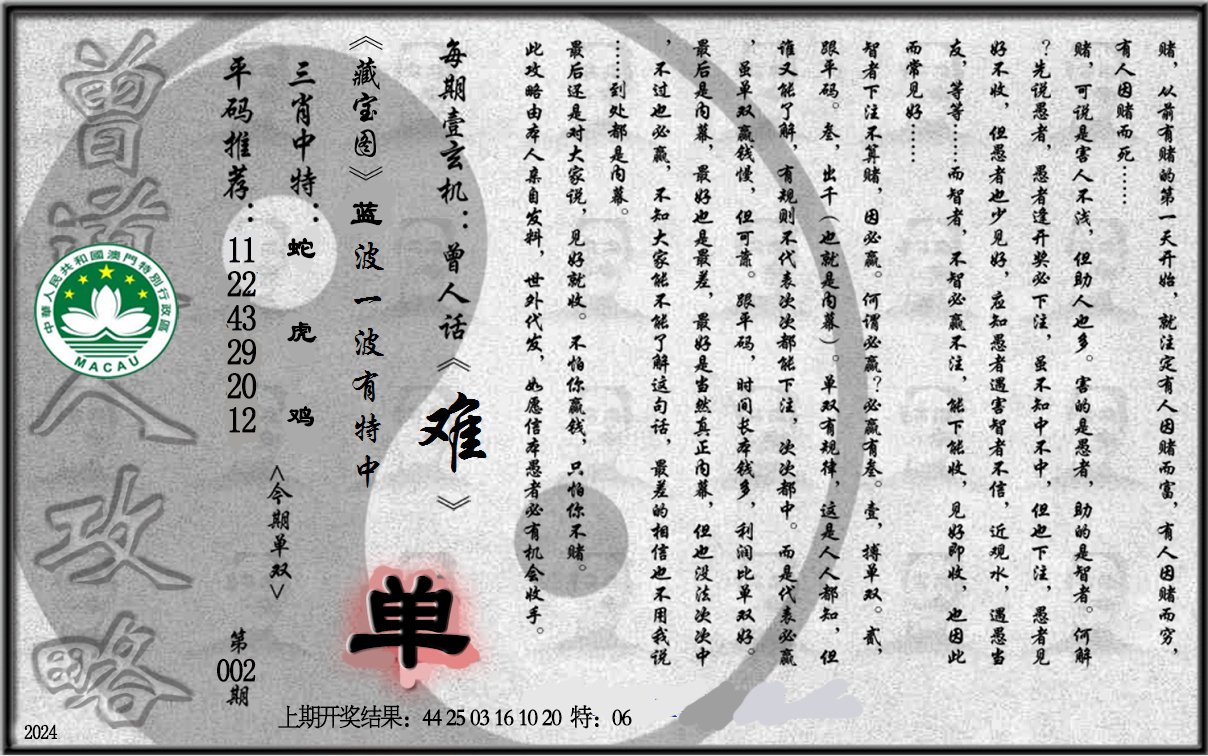 赌，从前有赌的第一天开始，就注定有人因赌而富，有人因赌而穷，
有人因赌而死……
赌，可说是害人不浅，但助人也多。害的是愚者，助的是智者。何解
？先说愚者，愚者逢开奖必下注，虽不知中不中，但也下注，愚者见
好不收，但愚者也少见好，应知愚者遇害智者不信，近观水，遇愚当
友，等等……而智者，不智必赢不注，能下能收，见好即收，也因此
而常见好……
智者下注不算赌，因必赢。何谓必赢？必赢有叁。壹，搏单双。贰，
跟平码。叁，出千（也就是内幕）。单双有规律，这是人人都知，但
谁又能了解，有规则不代表次次都能下注，次次都中。而是代表必赢
，虽单双赢钱慢，但可靠。跟平码，时间长本钱多，利润比单双好。
最后是内幕，最好也是最差，最好是当然真正内幕，但也没法次次中
，不过也必赢，不知大家能不能了解这句话，最差的相信也不用我说
……到处都是内幕。
最后还是对大家说，见好就收。不怕你赢钱，只怕你不赌。
此攻略由本人亲自发料，世外代发，如愿信本愚者必有机会收手。
每期壹玄机：曾人话《难》
《藏宝图》蓝波一波有特中
单
三肖中特：蛇 虎 鸡
<今期单双>
平码推荐：11 22 43 29 20 12
第002期
曾道人攻略
中華人民共和國澳門特別行政區
MACAU
上期开奖结果：44 25 03 16 10 20 特：06
2024